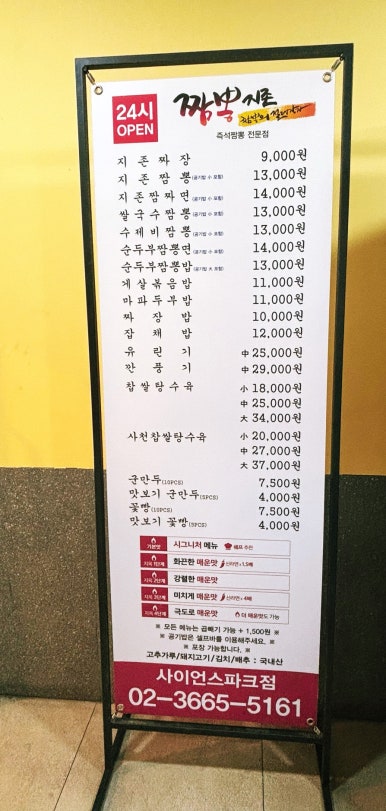 24시
OPEN
짬뽕지존
즉석짬뽕 전문점
지존짜장 9,000원
지존짬뽕(공기밥 小 포함) 13,000원
지존짬짜면(공기밥 小 포함) 14,000원
쌀국수짬뽕(공기밥 小 포함) 13,000원
수제비짬뽕(공기밥 小 포함) 13,000원
순두부짬뽕면(공기밥 小 포함) 14,000원
순두부짬뽕밥(공기밥 大 포함) 13,000원
게살볶음밥 11,000원
마파두부밥 11,000원
짜장밥 10,000원
잡채밥 12,000원
유린기 中 25,000원
깐풍기 中 29,000원
찹쌀탕수육 小 18,000원
中 25,000원
大 34,000원
사천찹쌀탕수육 小 20,000원
中 27,000원
大 37,000원
군만두(10PCS) 7,500원
맛보기 군만두(5PCS) 4,000원
꽃빵(10PCS) 7,500원
맛보기 꽃빵(5PCS) 4,000원
기본맛 시그니처 메뉴 셰프 추천
지옥 1단계 화끈한 매운맛 신라면x1.5배
지옥 2단계 강렬한 매운맛
지옥 3단계 미치게 매운맛 신라면x4배
지옥 4단계 극도로 매운맛 더 매운맛도 가능
※ 모든 메뉴는 곱빼기 가능 + 1,500원 ※
※ 공기밥은 셀프바를 이용해주세요. ※
※ 포장 가능합니다. ※
고추가루/돼지고기/김치/배추 : 국내산
사이언스파크점
02-3665-5161